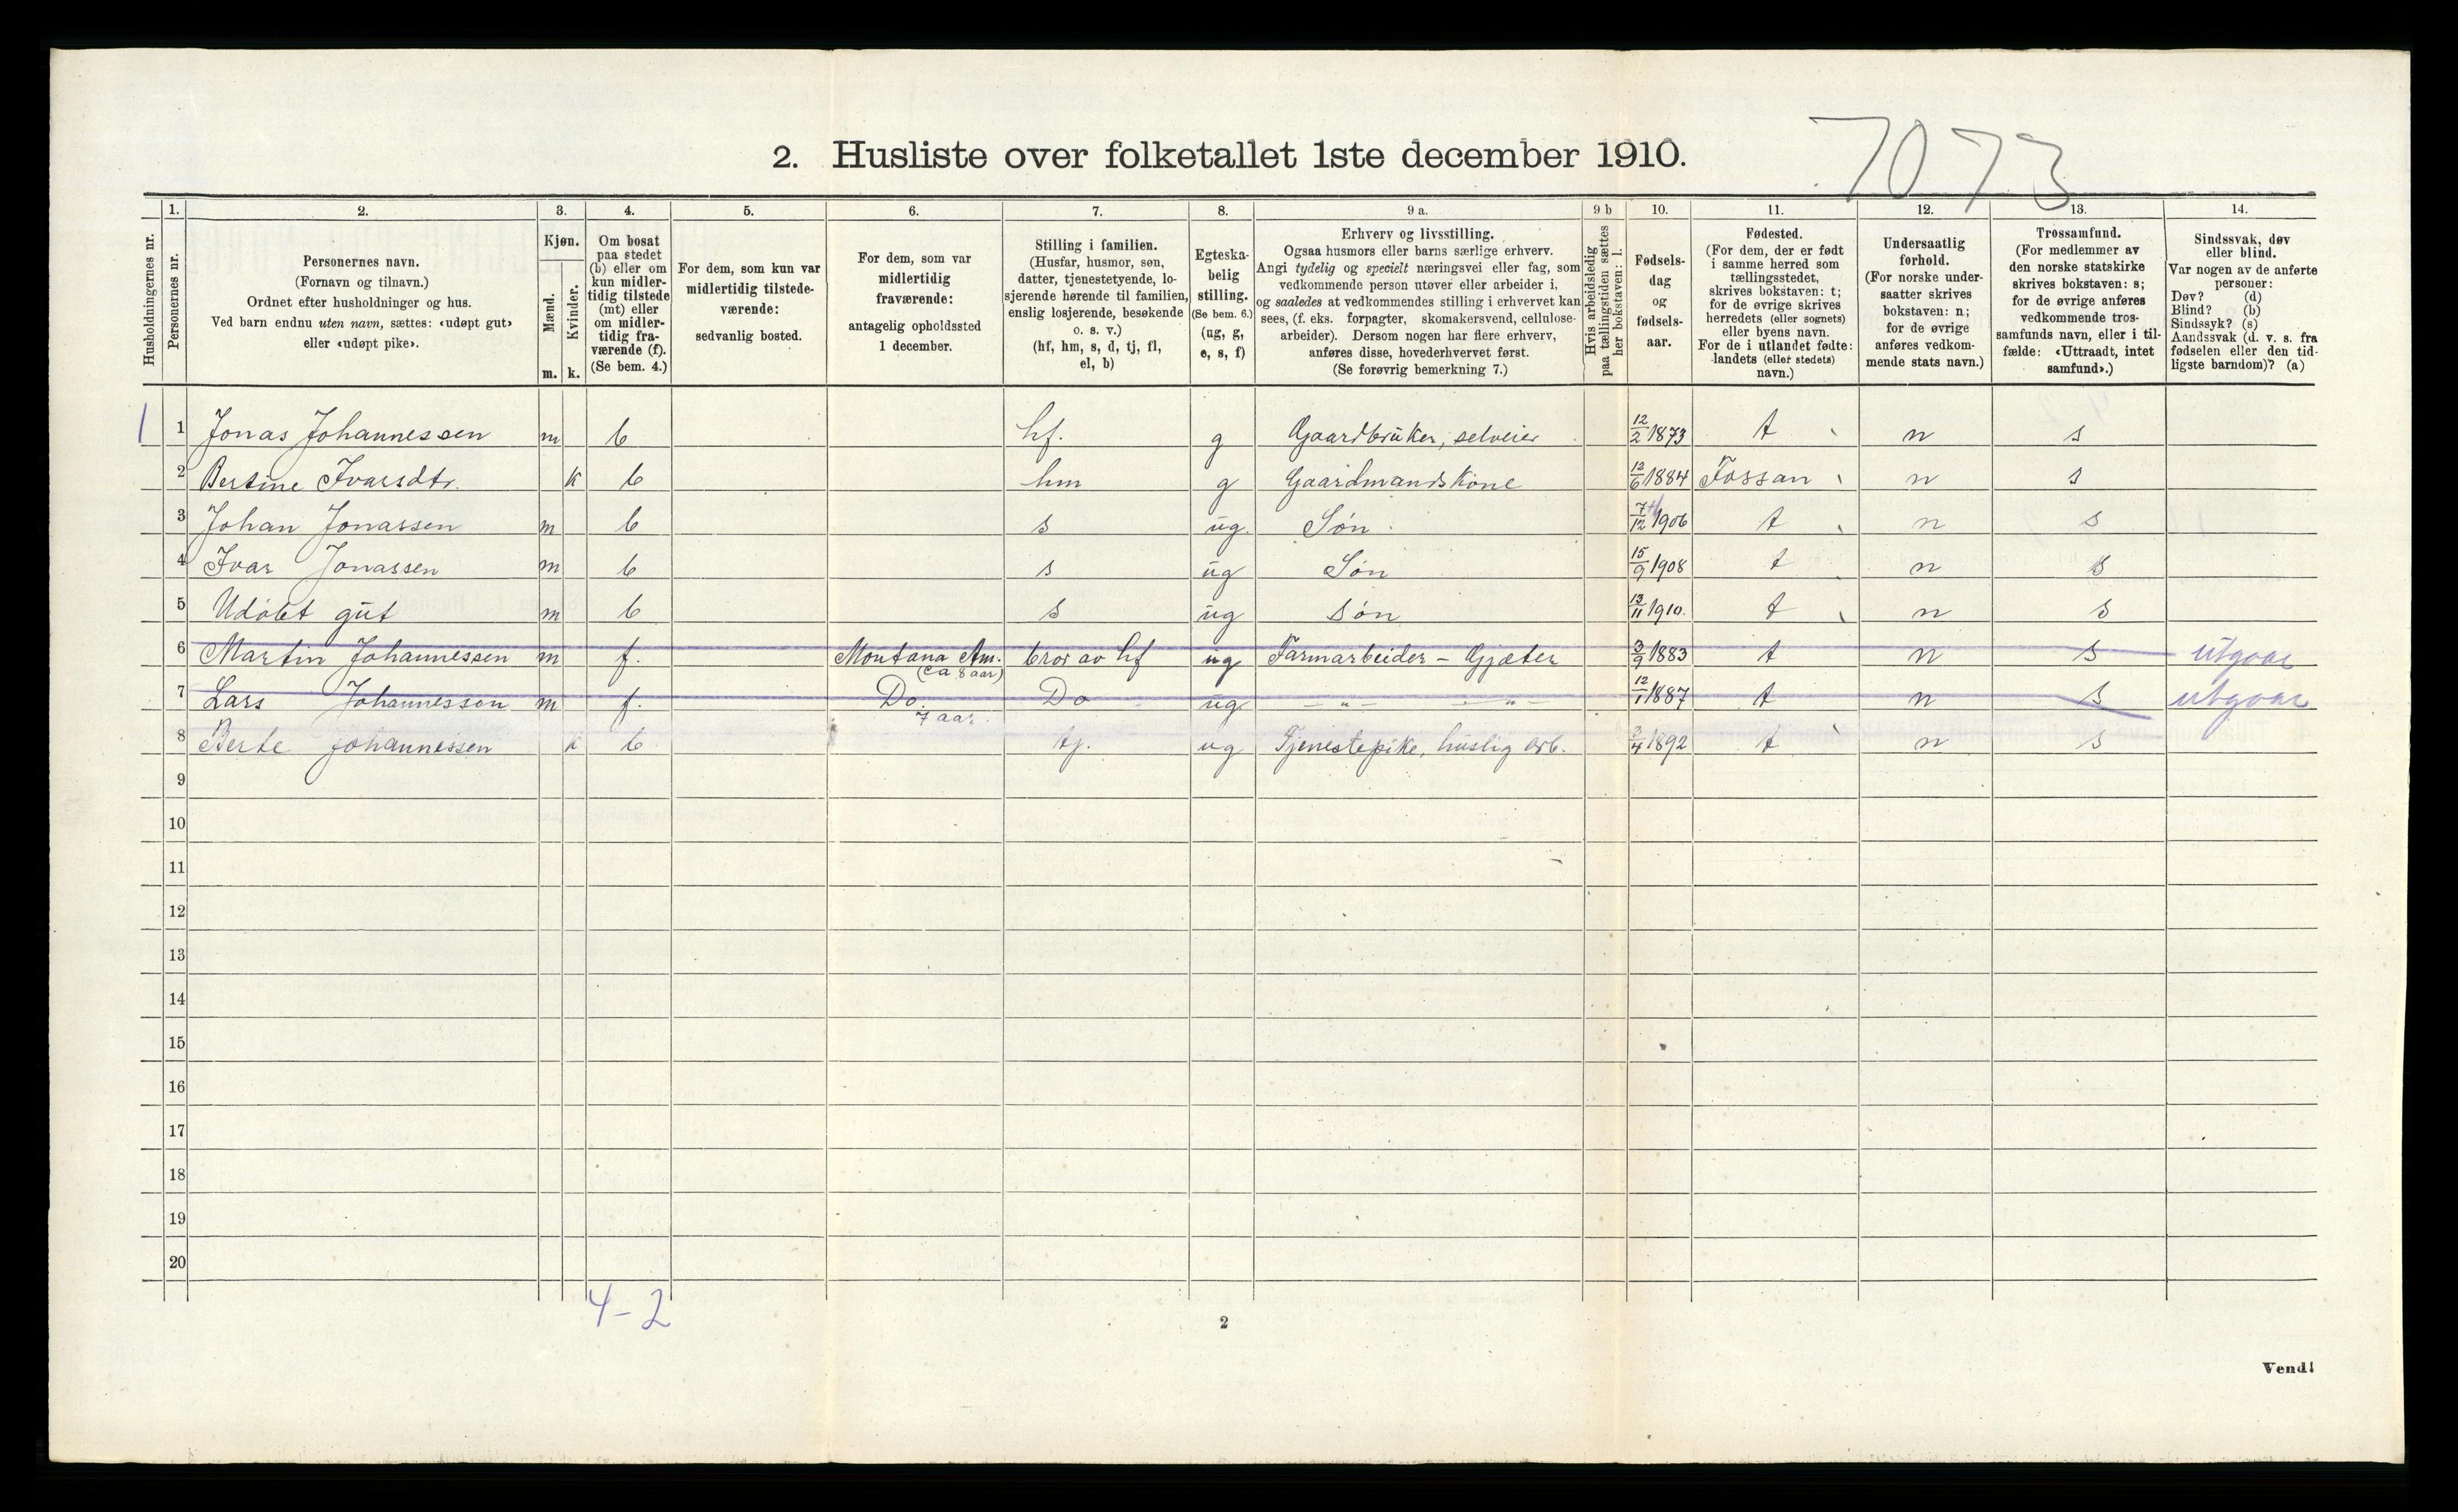 7073
2. Husliste over folketallet 1ste december 1910.
Husholdningernes nr.
1.
Personernes nr.
2.
Personernes navn.
(Fornavn og tilnavn.)
Ordnet efter husholdninger og hus.
Ved barn endnu uten navn, sættes: «udøpt gut»
eller «udøpt pike».
3.
Kjøn.
Mænd.
Kvinder.
m. k.
4.
Om bosat
paa stedet
(b) eller om
kun midler-
tidig tilstede
(mt) eller
om midler-
tidig fra-
værende (f).
(Se bem. 4.)
5.
For dem, som kun var
midlertidig tilstede-
værende:
sedvanlig bosted.
6.
For dem, som var
midlertidig
fraværende:
antagelig opholdssted
1 december.
7.
Stilling i familien.
(Husfar, husmor, søn,
datter, tjenestetyende, lo-
sjerende hørende til familien,
enslig losjerende, besøkende
o. s. v.)
(hf, hm, s, d, tj, fl,
el, b)
8.
Egteska-
belig
stilling.
(Se bem. 6.)
(ug, g,
e, s, f)
9 a.
Erhverv og livsstilling.
Ogsaa husmors eller barns særlige erhverv.
Angi tydelig og specielt næringsvei eller fag, som
vedkommende person utøver eller arbeider i,
og saaledes at vedkommendes stilling i erhvervet kan
sees, (f. eks. forpagter, skomakersvend, cellulose-
arbeider). Dersom nogen har flere erhverv,
anføres disse, hovederhvervet først.
(Se forøvrig bemerkning 7.)
9 b
Hvis arbeidsledig
paa tællingstiden sættes
her bokstaven: l.
10.
Fødsels-
dag
og
fødsels-
aar.
11.
Fødested.
(For dem, der er født
i samme herred som
tællingsstedet,
skrives bokstaven: t;
for de øvrige skrives
herredets (eller sognets)
eller byens navn.
For de i utlandet fødte:
landets (eller stedets)
navn.)
12.
Undersaatlig
forhold.
(For norske under-
saatter skrives
bokstaven: n;
for de øvrige
anføres vedkom-
mende stats navn.)
13.
Trossamfund.
(For medlemmer av
den norske statskirke
skrives bokstaven: s;
for de øvrige anføres
vedkommende tros-
samfunds navn, eller i til-
fælde: «Uttraadt, intet
samfund».)
14.
Sindssvak, døv
eller blind.
Var nogen av de anførte
personer:
Døv? (d)
Blind? (b)
Sindssyk? (s)
Aandssvak (d. v. s. fra
fødselen eller den tid-
ligste barndom)? (a)
1 1 Jonas Johannessen m b hf. g Gaardbruker, selveier 12/2 1873 t n s
2 Bertine Ivarsdtr. k b hm g Gaardmandskone 12/6 1884 Fossan n s
3 Johan Jonassen m b s ug. Søn 7/12 1906 t n s
4 Ivar Jonassen m b s ug Søn 15/9 1908 t n s
5 Udøbt gut m b s ug søn 13/11 1910. t n s
6 Martin Johannessen m f. Montana Am. (ca 8 aar) bror av hf ug Farmarbeider - Gjæter 3/9 1883 t n s utgaar
7 Lars Johannesson m f. Do. 7 aar. Do ug - " - - " - 12/1 1887 t n s utgaar
8 Berte Johannessen k b tj. ug Tjenestepike, huslig arb. 1892 t n s
9
10
11
12
13
14
15
16
17
18
19
20
4-2
2
Vend!